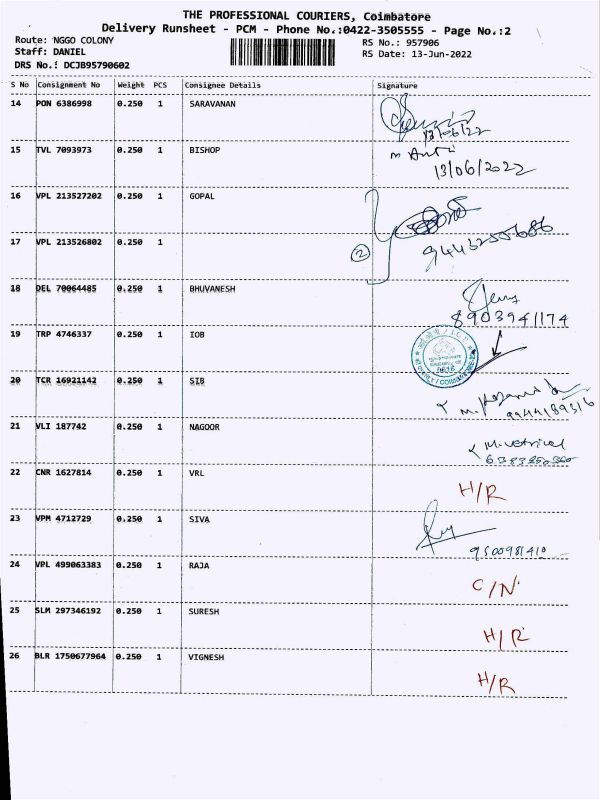 THE PROFESSIONAL COURIERS, Coimbatore
Delivery Runsheet - PCM - Phone No.:0422-3505555 - Page No.:2
Route: NGGO COLONY
RS No.: 957906
Staff: DANIEL
RS Date: 13-Jun-2022
DRS No.: DCJB95790602
S No Consignment No Weight PCS Consignee Details Signature
14 PON 6386998 0.250 1 SARAVANAN
13/06/22
15 TVL 7093973 0.250 1 BISHOP
13/06/2022
16 VPL 213527202 0.250 1 GOPAL
17 VPL 213526802 0.250 1
2
18 DEL 70064485 0.250 1 BHUVANESH
8903941174
19 TRP 4746337 0.250 1 IOB
20 TCR 16921142 0.250 1 SIB
21 VLI 187742 0.250 1 NAGOOR
22 CNR 1627814 0.250 1 VRL H/R
23 VPM 4712729 0.250 1 SIVA
9500981410
24 VPL 499063383 0.250 1 RAJA C/N
25 SLM 297346192 0.250 1 SURESH H/R
26 BLR 1750677964 0.250 1 VIGNESH H/R